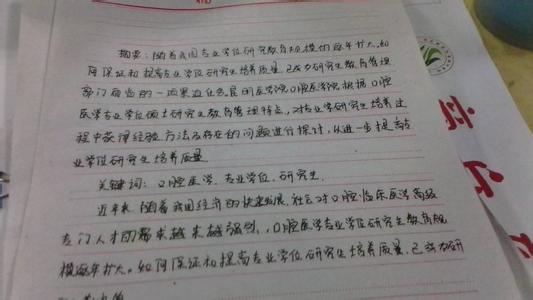 摘要:随着我国专业学位研究教育规模的逐年扩大,如
何保证和提高专业学位研究生培养质量,已成为研究生教育管理
部门面临的一项重要任务,医学院口腔医学院根据口腔
医学专业学位硕士研究教育管理特点,对专业学研究生培养过
程中获得经验方法及存在的问题进行探讨,从进一步提高专
业学位研究生培养质量
关键词:口腔医学,专业学位,研究生.
近年来,随着我国经济的快速发展,社会对口腔临床医学高级
专门人才的需求越来越强烈,口腔医学专业学位研究生教育规
模逐年扩大。如何保证和提高专业学位研究生培养质量,已成为研